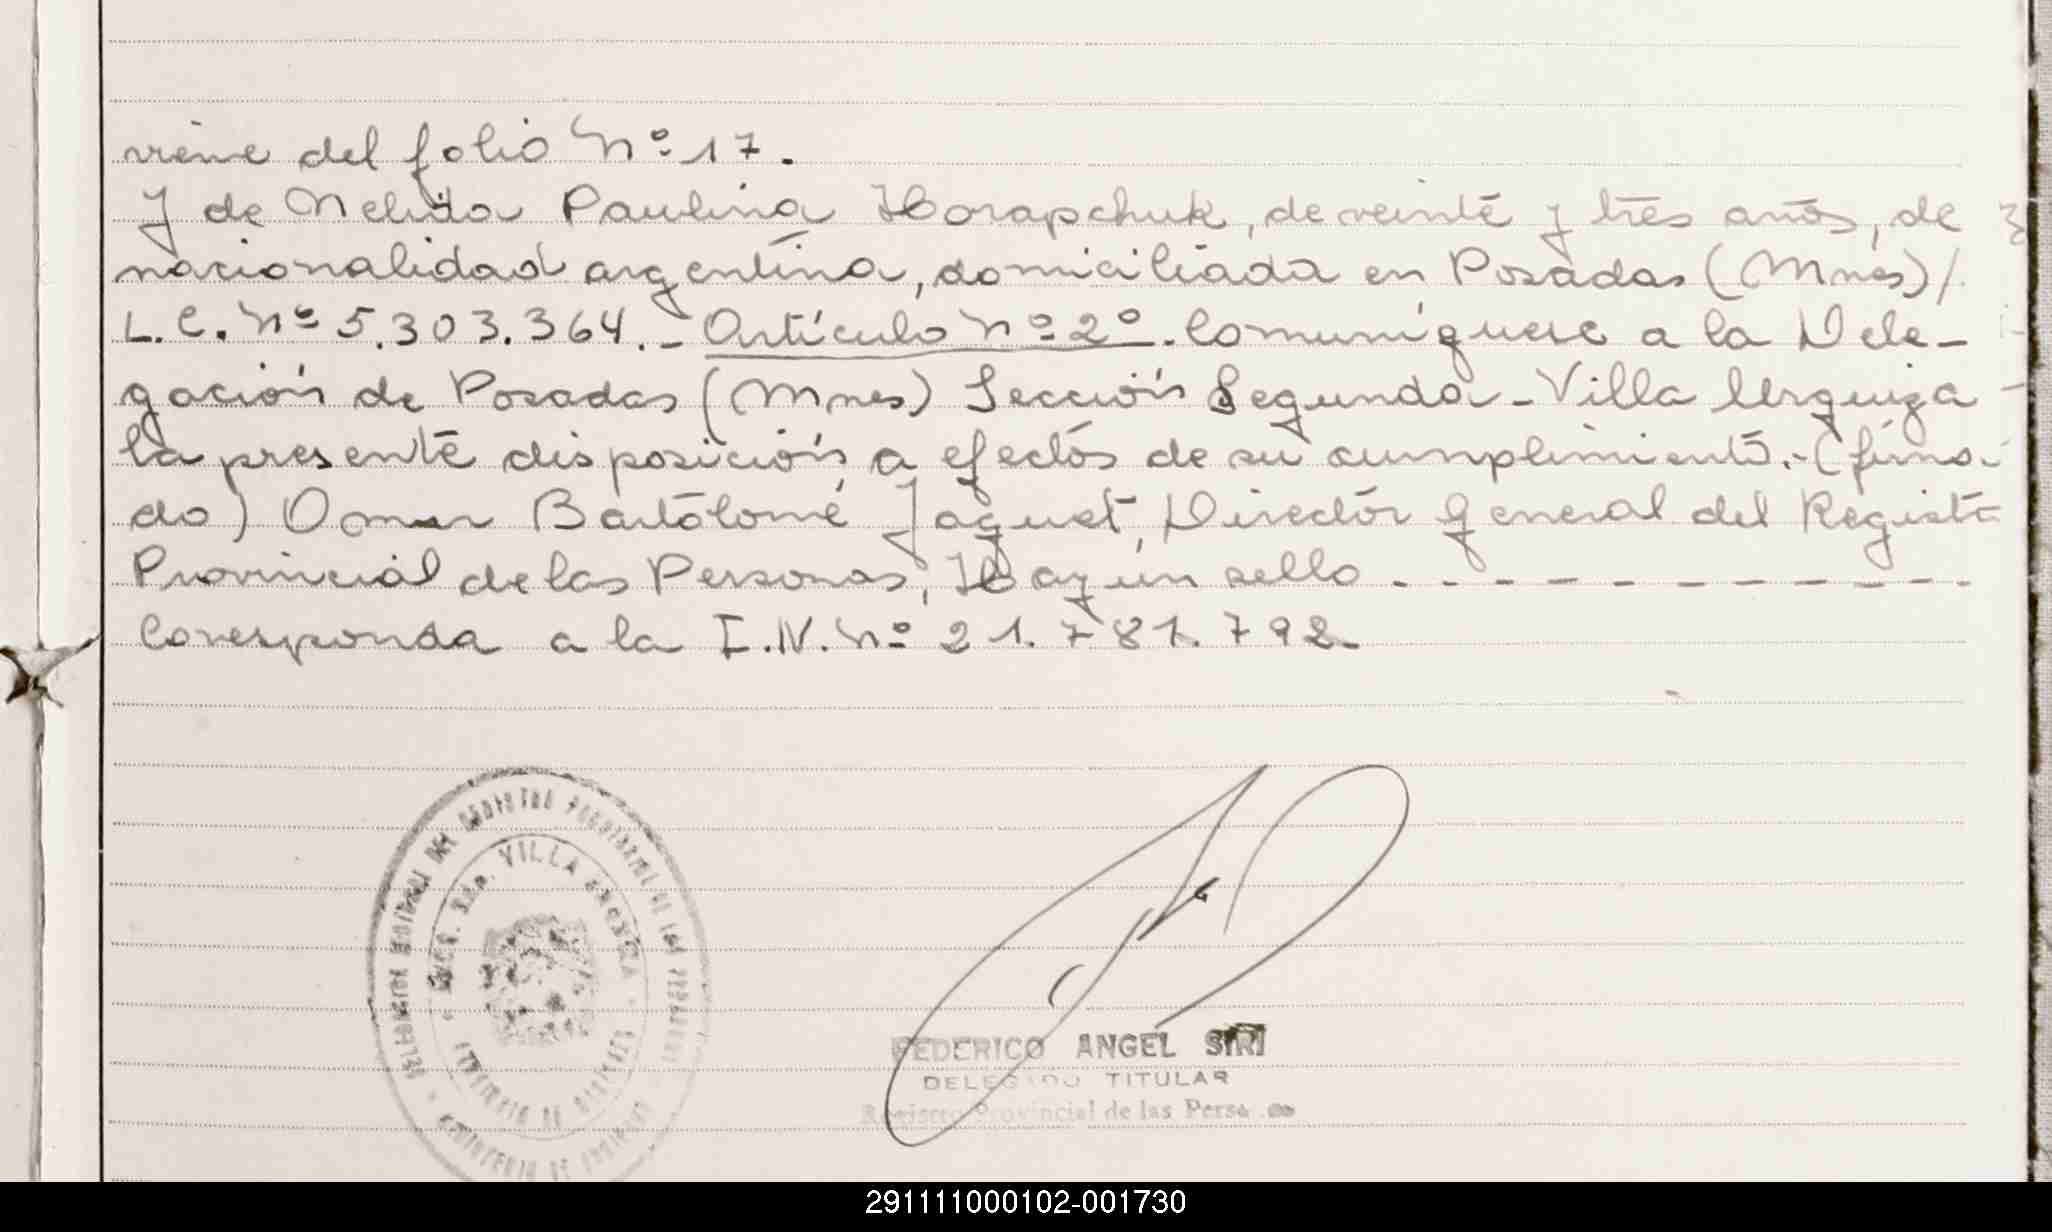 viene del folio Nº 17.
Y de Nelida Paulina Horapchuk, de veinte y tres años, de
nacionalidad argentina, domiciliada en Posadas (Mnes)/
L.C. Nº 5.303.364.- Artículo Nº 2º. Comuníquese a la Dele-
gación de Posadas (Mnes) Sección Segunda - Villa Urquiza
la presente disposición a efectos de su cumplimiento.- (firma-
do) Omar Bartolomé Jaquet, Director General del Registro
Provincial de las Personas, Hay un sello - - - - - - - - - -
Corresponda a la I.N. Nº 21.781.792.
REGISTRO PROVINCIAL DE LAS PERSONAS
SECC. 2da. VILLA URQUIZA
FEDERICO ANGEL SIRI
DELEGADO TITULAR
Registro Provincial de las Personas
291111000102-001730